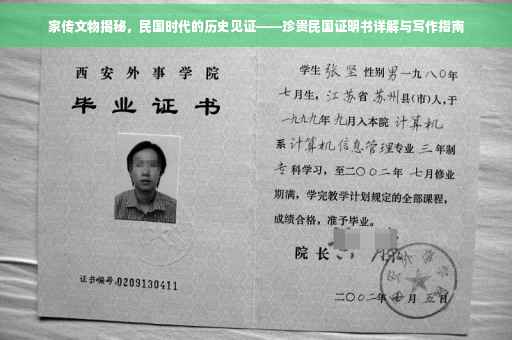 家传文物揭秘，民国时代的历史见证——珍贵民国证明书详解与写作指南
西安外事学院
毕业证书
证书编号:0209130411
学生张坚性别男一九八〇年
七月生，江苏省苏州县(市)人，于
一九九九年九月入本院计算机
系计算机信息管理专业三年制
专科学习，至二〇〇二年七月修业
期满，学完教学计划规定的全部课程，
成绩合格，准予毕业。
院长
二〇〇二年 月五日